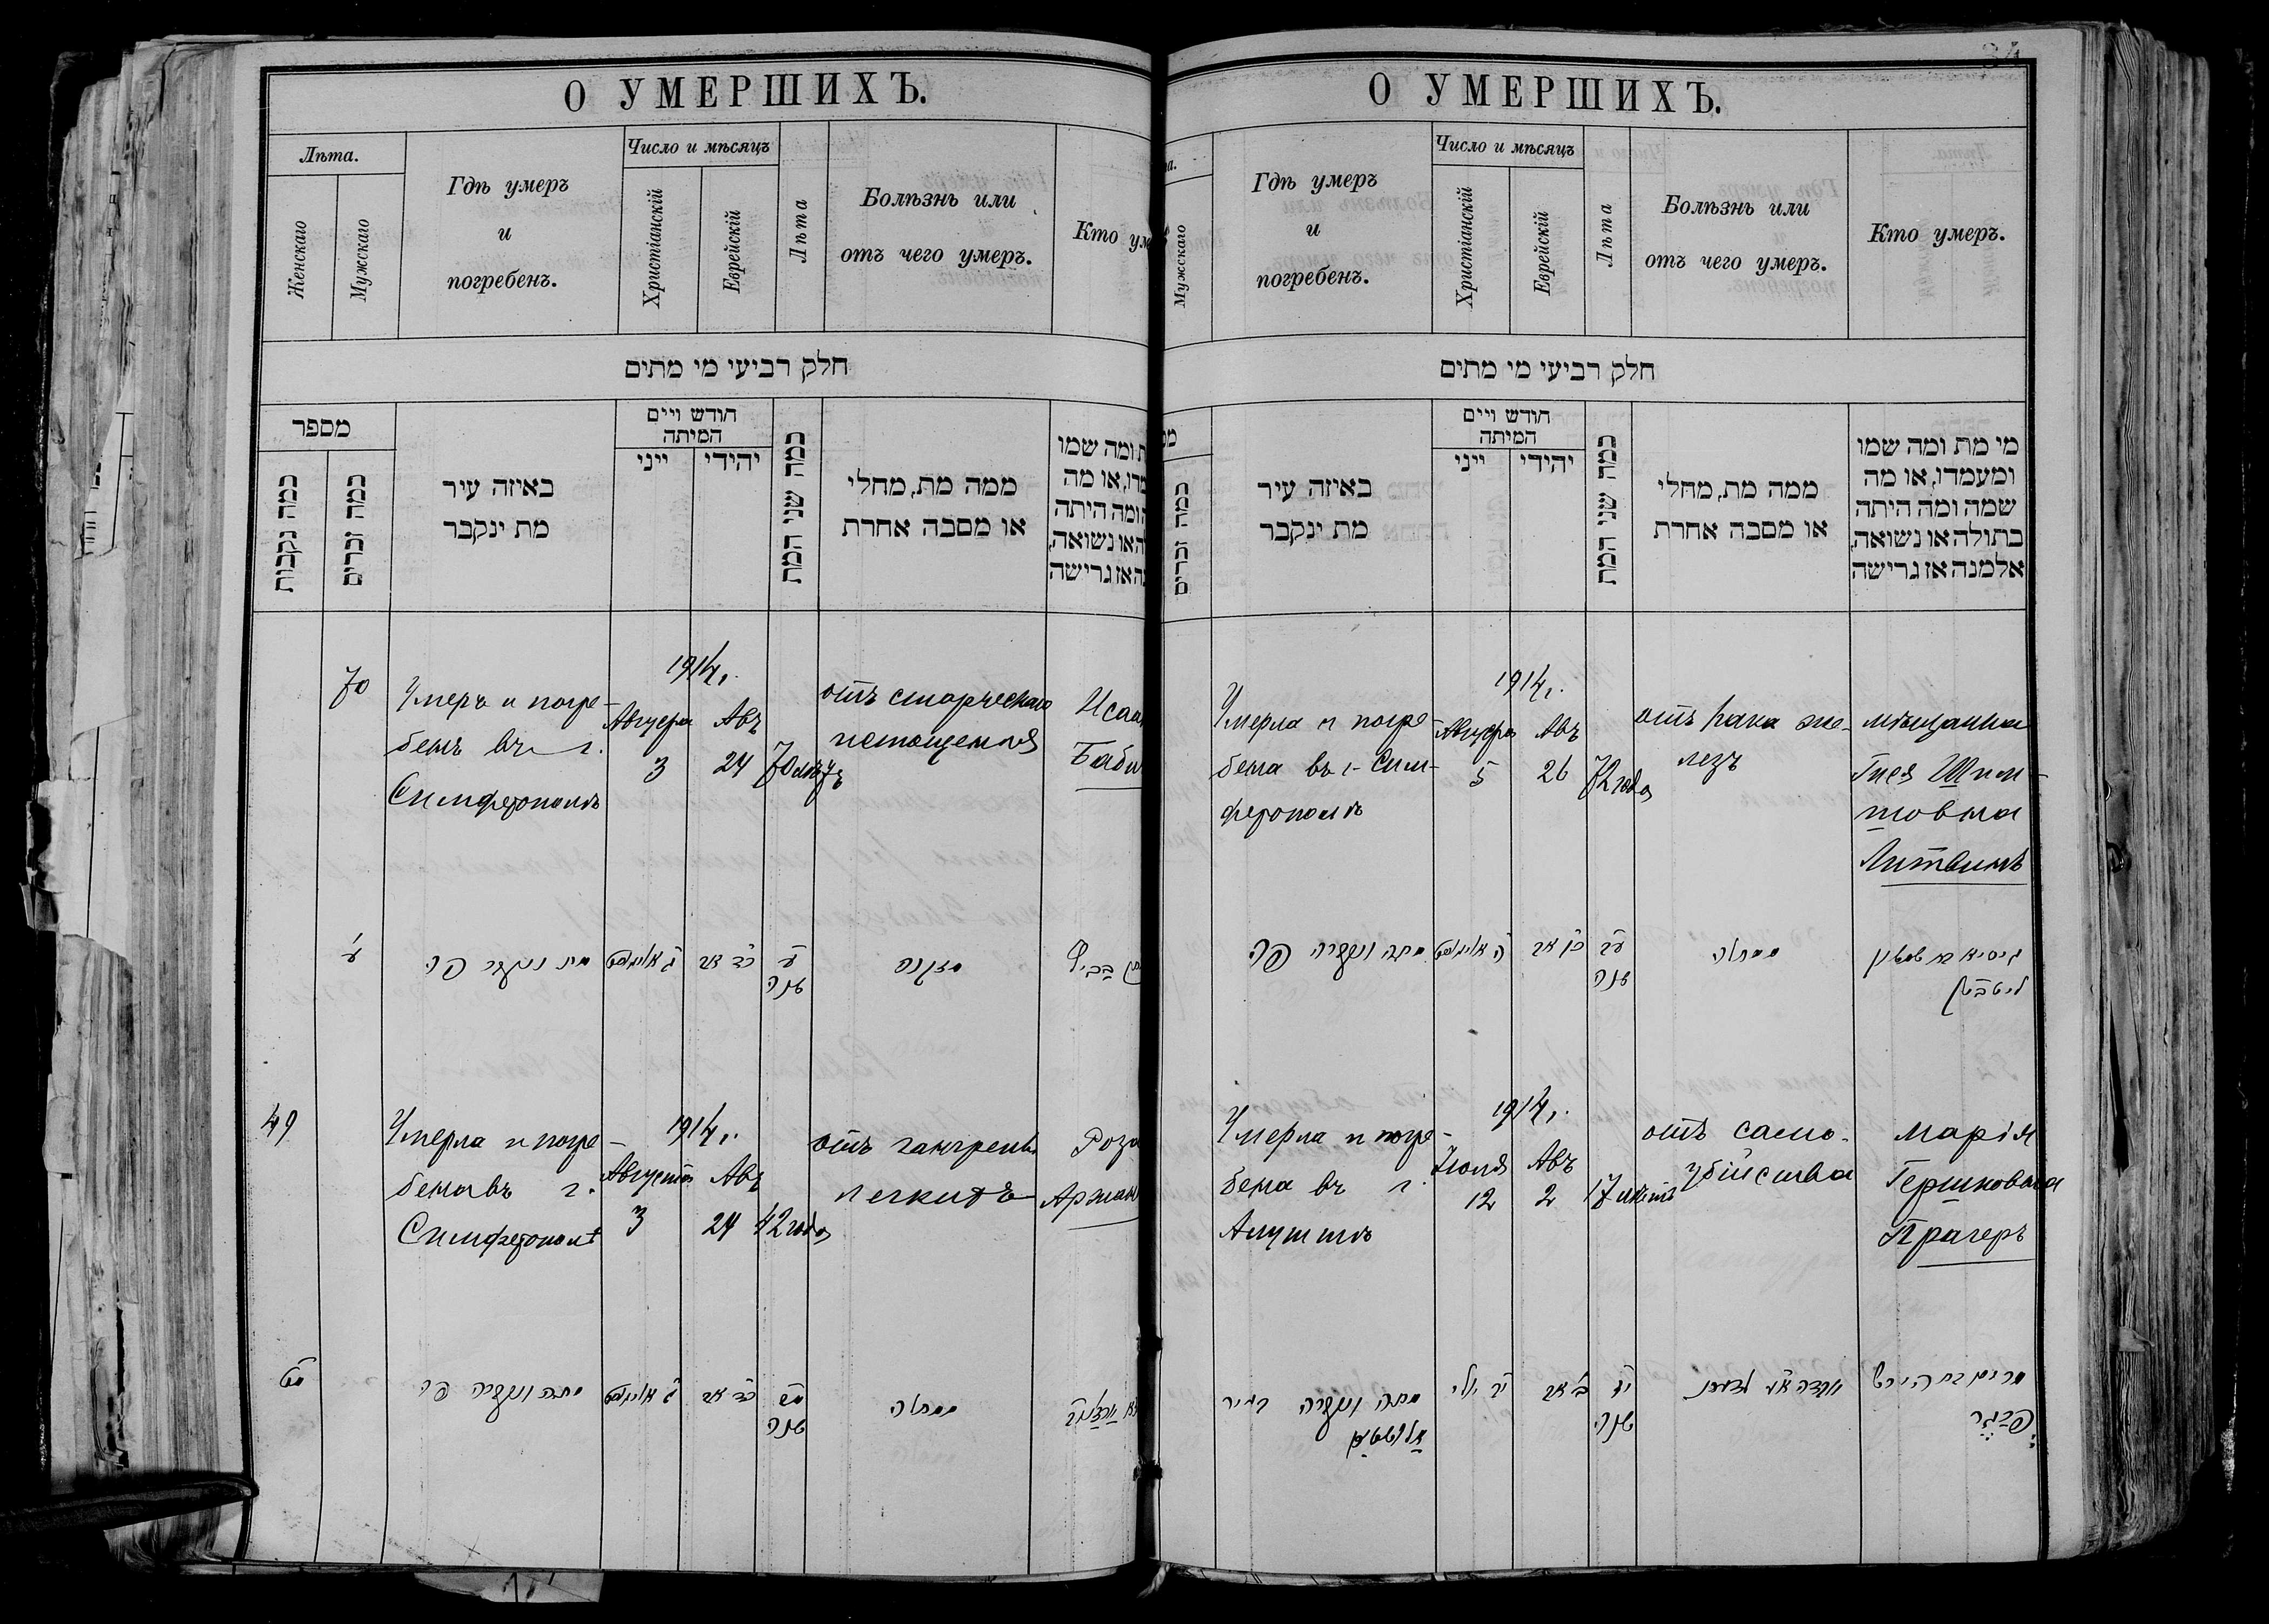 О УМЕРШИХЪ.
Лѣта.
Женскаго
Мужскаго
Гдѣ умеръ
и
погребенъ.
Число и мѣсяцъ
Христіанскій
Еврейскій
Лѣта
Болѣзнь или
отъ чего умеръ.
Кто уме
חלק רביעי מי מתים
מספר
כמה נקבות
כמה זכרים
באיזה עיר
מת ינקבר
חודש ויים
המיתה
ייני
יהידי
כמה שני המת
ממה מת, מחלי
או מסבה אחרת
ת ומה שמו
מדו, או מה
הומה היתה
ה או נשואה,
נה אז גרישה
70
Умеръ и погре-
бенъ въ г.
Симферополѣ
1914 г.
Августа
3
Авъ
24
70 лѣтъ
отъ старческаго
истощенія
Исаак
Баби
ע'
מת ונקבר פה
ג אויגוסט
כד אב
ע
שנה
מזקנה
49
Умерла и погре-
бена въ г.
Симферополѣ
1914 г.
Августа
3
Авъ
24
42 года
отъ гангрены
легкихъ
Роза
Аржан
מט
מתה ונקברה פה
ג אויגוסט
כד אב
מב
שנה
ממחלה
34
О УМЕРШИХЪ.
та.
Мужскаго
Гдѣ умеръ
и
погребенъ.
Число и мѣсяцъ
Христіанскій
Еврейскій
Лѣта
Болѣзнь или
отъ чего умеръ.
Кто умеръ.
חלק רביעי מי מתים
מס
כמה זכרים
באיזה עיר
מת ינקבר
חודש ויים
המיתה
ייני
יהידי
כמה שני המת
ממה מת, מחלי
או מסבה אחרת
מי מת ומה שמו
ומעמדו, או מה
שמה ומה היתה
בתולה או נשואה,
אלמנה אז גרישה
Умерла и погре
бена въ г. Сим-
ферополѣ
1914 г.
Августа
5
Авъ
26
72 года
отъ рака же-
лезъ
мѣщанка
Гися Шим-
товна
Литвинъ
מתה ונקברה פה
ה אויגוסט
כו אב
עב
שנה
ממחלה
גיסיא בת שמטוב
ליטבין
Умерла и погре-
бена въ г.
Алуштѣ
1914 г.
Іюля
12
Авъ
2
17 лѣтъ
отъ само-
убійства
Марія
Гершковна
Прагеръ
מתה ונקברה בעיר
אלושטא
יב יולי
ב אב
יז
שנה
מרים בת הירש
פראגר